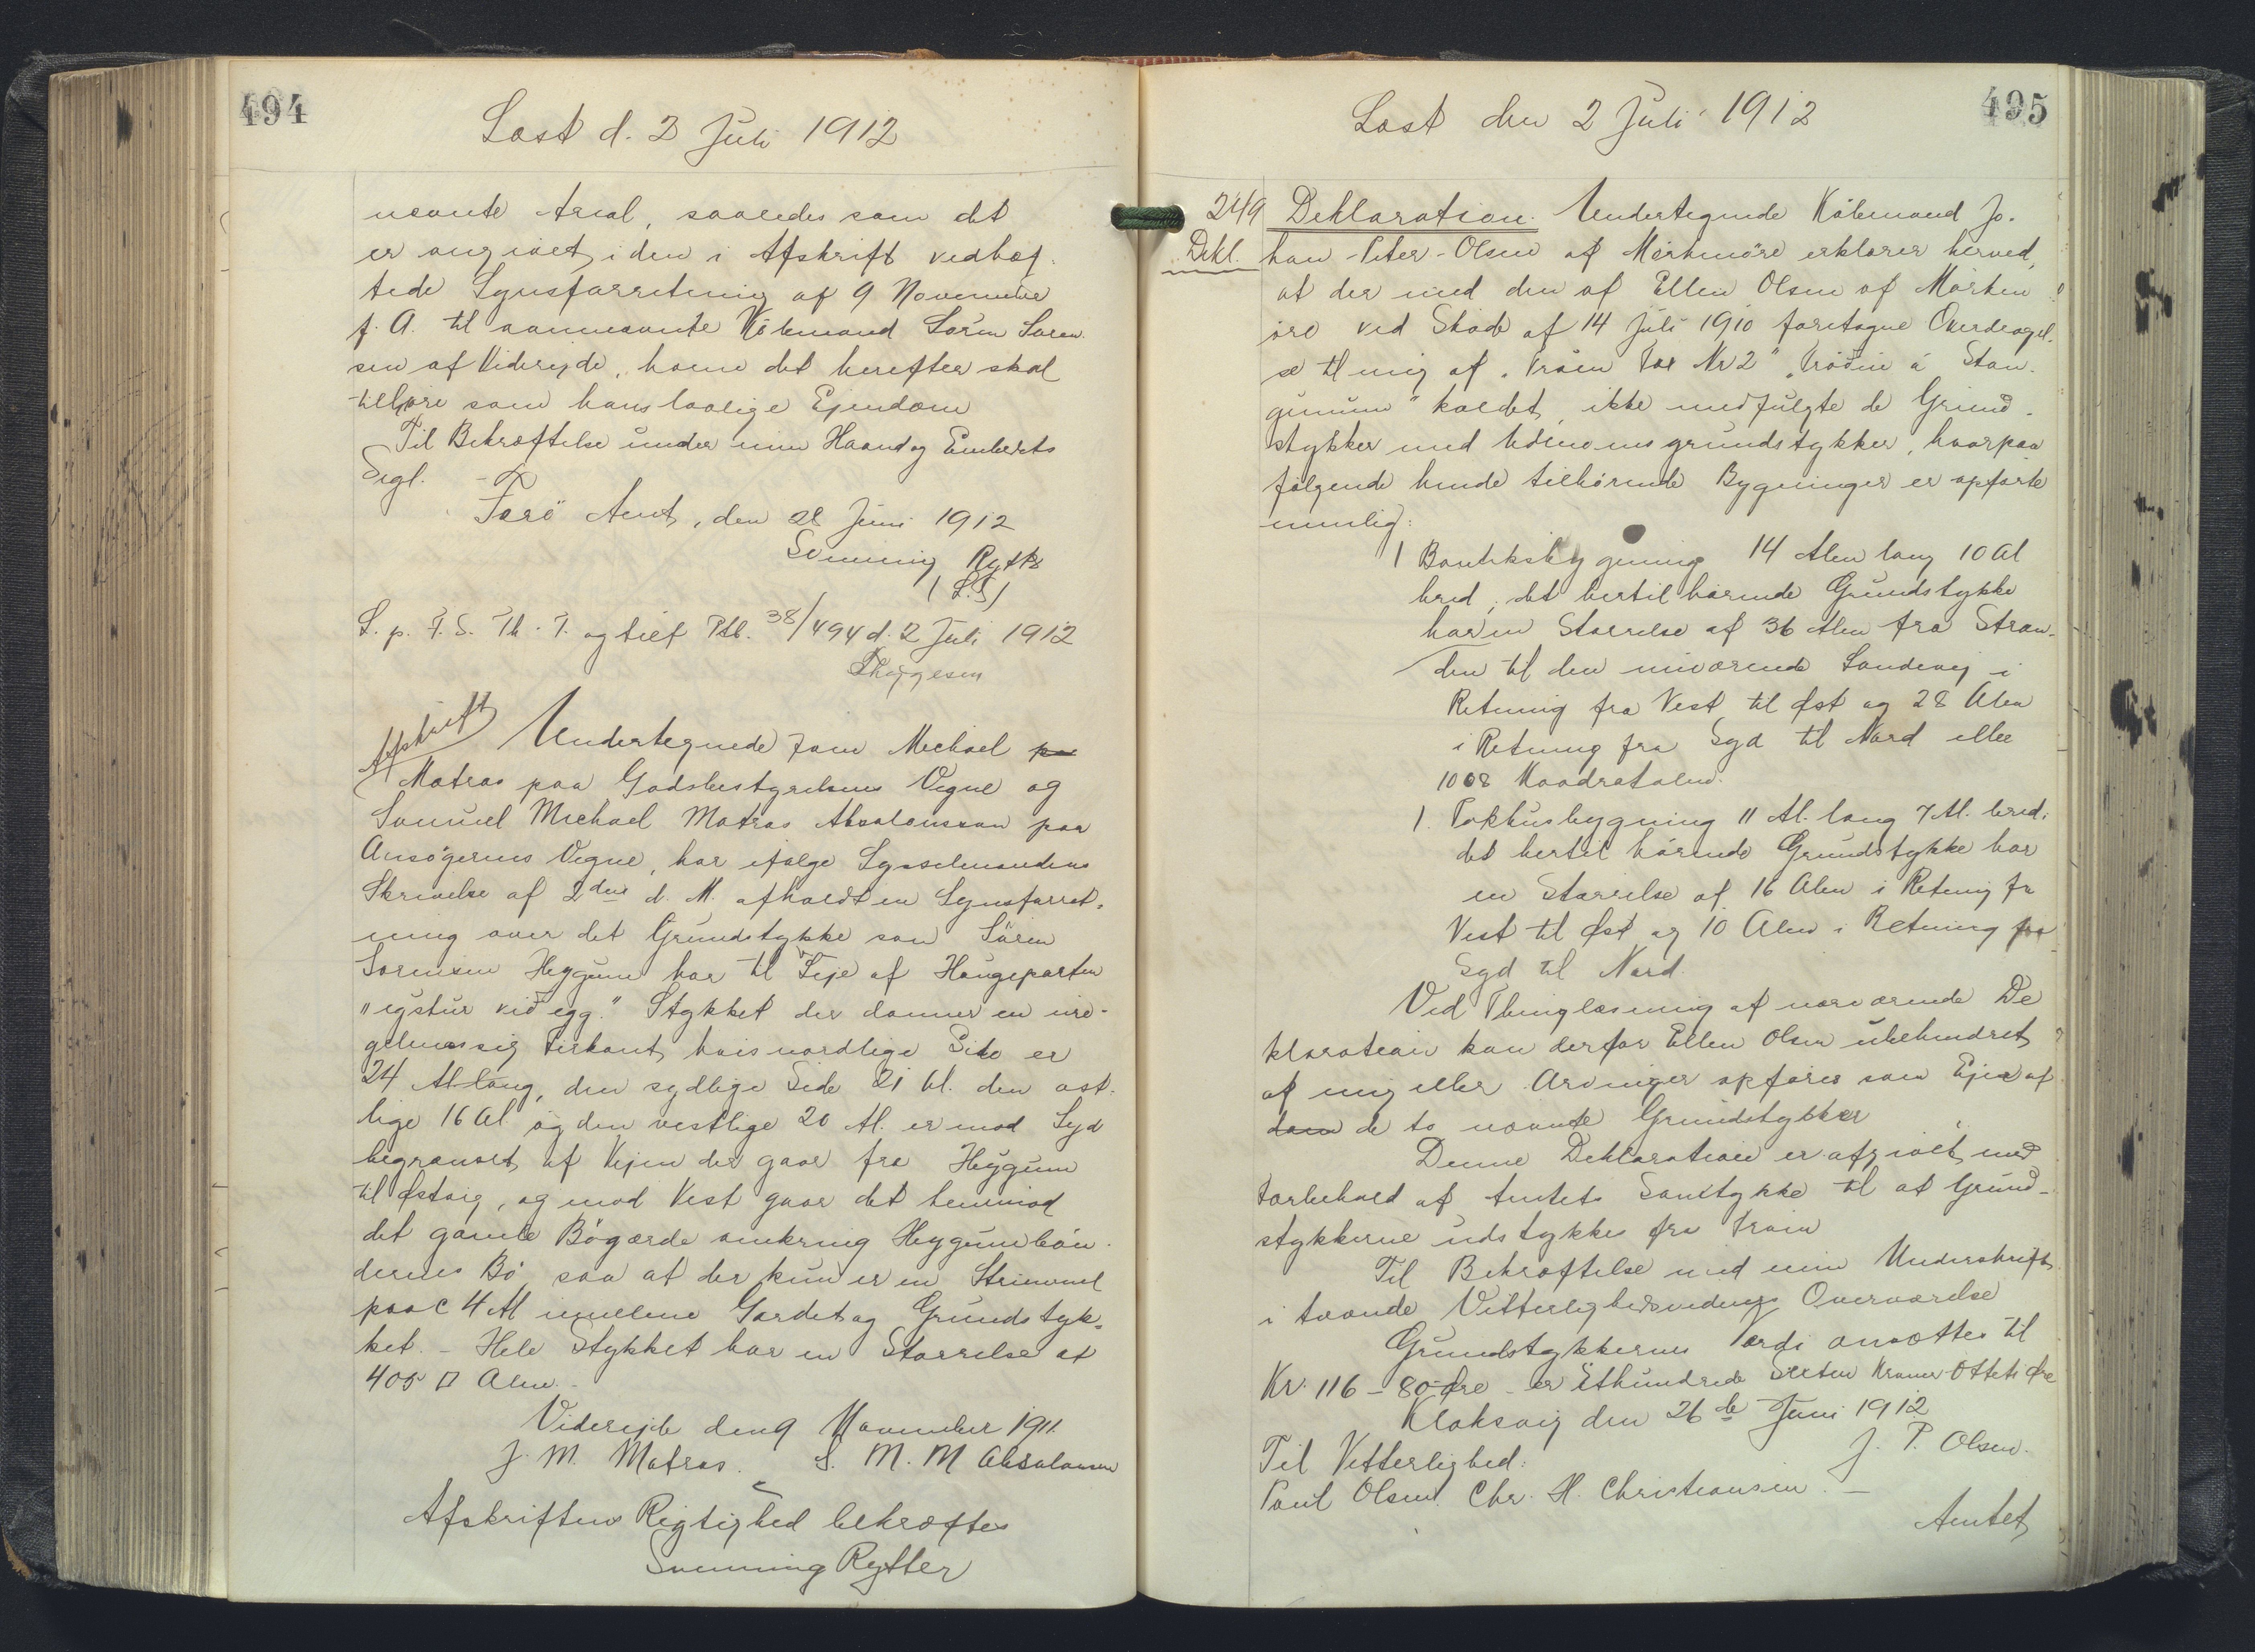 494
Læst d. 2 Juli 1912
nævnte Areal, saaledes som det
er angivet i den i Afskrift vedhæf-
tede Synsforretning af 9 November
f. A. til ovennævnte Købmand Sören Sören-
sen af Viderejde, hvem det herefter skal
tilhøre som hans lovlige Ejendom
Til Bekræftelse under min Haand og Embeds
Segl.
Færö Amt, den 28 Juni 1912
Svenning Rytter
(L.S)
L. p. F. S. Th. T. og tilf Ptb. 38/494 d. 2 Juli 1912
Thøgesen
Afskrift
Undertegnede Joen Michael pa
Matras paa Godsbestyrelsens Vegne og
Samuel Michael Matras Absalonsen paa
Ansøgerens Vegne, har ifølge Sysselmandens
Skrivelse af 2den d. M. afholdt en Synsforret-
ning over det Grundstykke som Sören
Sörensen Heygum har til Leje af Haugeparten
"ystur við egg." Stykket der danner en ure-
gelmæssig Firkant, hvis nordlige Side er
24 Al lang, den sydlige Side 21 Al. den øst-
lige 16 Al og den vestlige 20 Al. er mod Syd
begrænset af Vejen der gaar fra Heygum
til Østvig, og mod Vest gaar det henimod
det gamle Bögærde omkring Heygumbön-
dernes Bö, saa at der kun er en Strimmel
paa c 4 Al imellem Gærdet og Grundstyk-
ket. - Hele Stykket har en Størrelse af
405 □ Alen.
Viderejde den 9 November 1911.
J. M. Matras. S. M. M Absalonsen
Afskriftens Rigtighed bekræftes
Svenning Rytter
495
Læst den 2 Juli 1912
249
Dekl.
Deklaration. Undertegnede Købmand Jo-
han-Peter-Olsen af Mörkenöre erklærer herved,
at der med den af Ellen Olsen af Mörken
öre ved Skøde af 14 Juli 1910 foretagne Overdragel-
se til mig af "Tröen Nr 2" "Tröðni á Stan-
gunum" kaldet, ikke medfulgte de Grund-
stykker med Udenomsgrundstykker, hvorpaa
følgende hende tilhørende Bygninger er opførte
nemlig:
1 Boutiksbygning 14 Alen lang 10 Al
bred; det hertil hørende Grundstykke
har en Størrelse af 36 Alen fra Stran-
den til den nuværende Landevej i
Retning fra Vest til Øst og 28 Alen
i Retning fra Syd til Nord eller
1008 Kvadratalen.
1. Pakhusbygning 11 Al. lang 7 Al. bred.
det hertil hørende Grundstykke har
en Størrelse af 16 Alen i Retning fra
Vest til Øst og 10 Alen i Retning fra
Syd til Nord.
Ved Thinglæsning af nærværende De
klaration kan derfor Ellen Olsen uhehindret
af mig eller Arvinger opføres som Ejer af
dem de to nævnte Grundstykker
Denne Deklaration er afgivet med
Forbehold af Amtets Samtykke til at Grund-
stykkerne udstykkes fra Tröin
Til Bekræftelse med min Underskrift
i tvende Vitterlighedsvidners Overværelse
Grundstykkernes Værdi ansættes til
Kr. 116 - 80 Øre - er Ethundrede Sexten Kroner Otteti Øre
Klaksvig den 26de Juni 1912
J. P. Olsen.
Til Vitterlighed:
Poul Olsen. Chr. H. Christiansen. -
Amtet